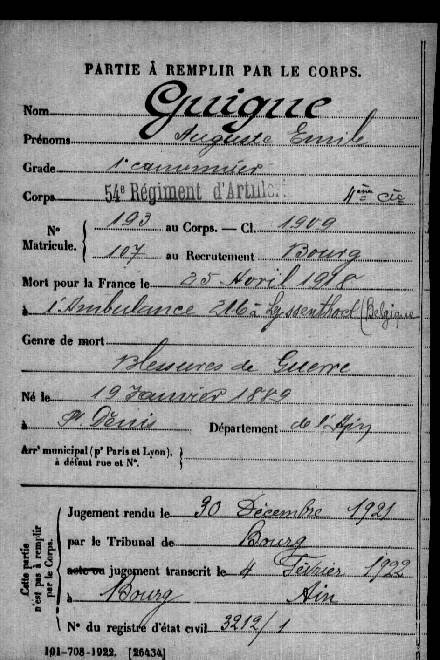 PARTIE À REMPLIR PAR LE CORPS.
Nom Guigue
Prénoms Auguste Emile
Grade 1e canonnier
Corps 54e Régiment d'Artilleri
N° Matricule. { 193 au Corps. — Cl. 1909
107 au Recrutement Bourg
Mort pour la France le 25 Avril 1918
à l'Ambulance 216 à Lyssenthoek (Belgique
Genre de mort
Blessures de Guerre
Né le 19 Janvier 1889
à St Denis Département de l'Ain
Arrt municipal (pr Paris et Lyon), à défaut rue et N°. }
Cette partie n'est pas à remplir par le Corps.
Jugement rendu le 30 Décembre 1921
par le Tribunal de Bourg
acte ou jugement transcrit le 4 Février 1922
à Bourg Ain
N° du registre d'état civil 3212/1
101-708-1922. [26434]